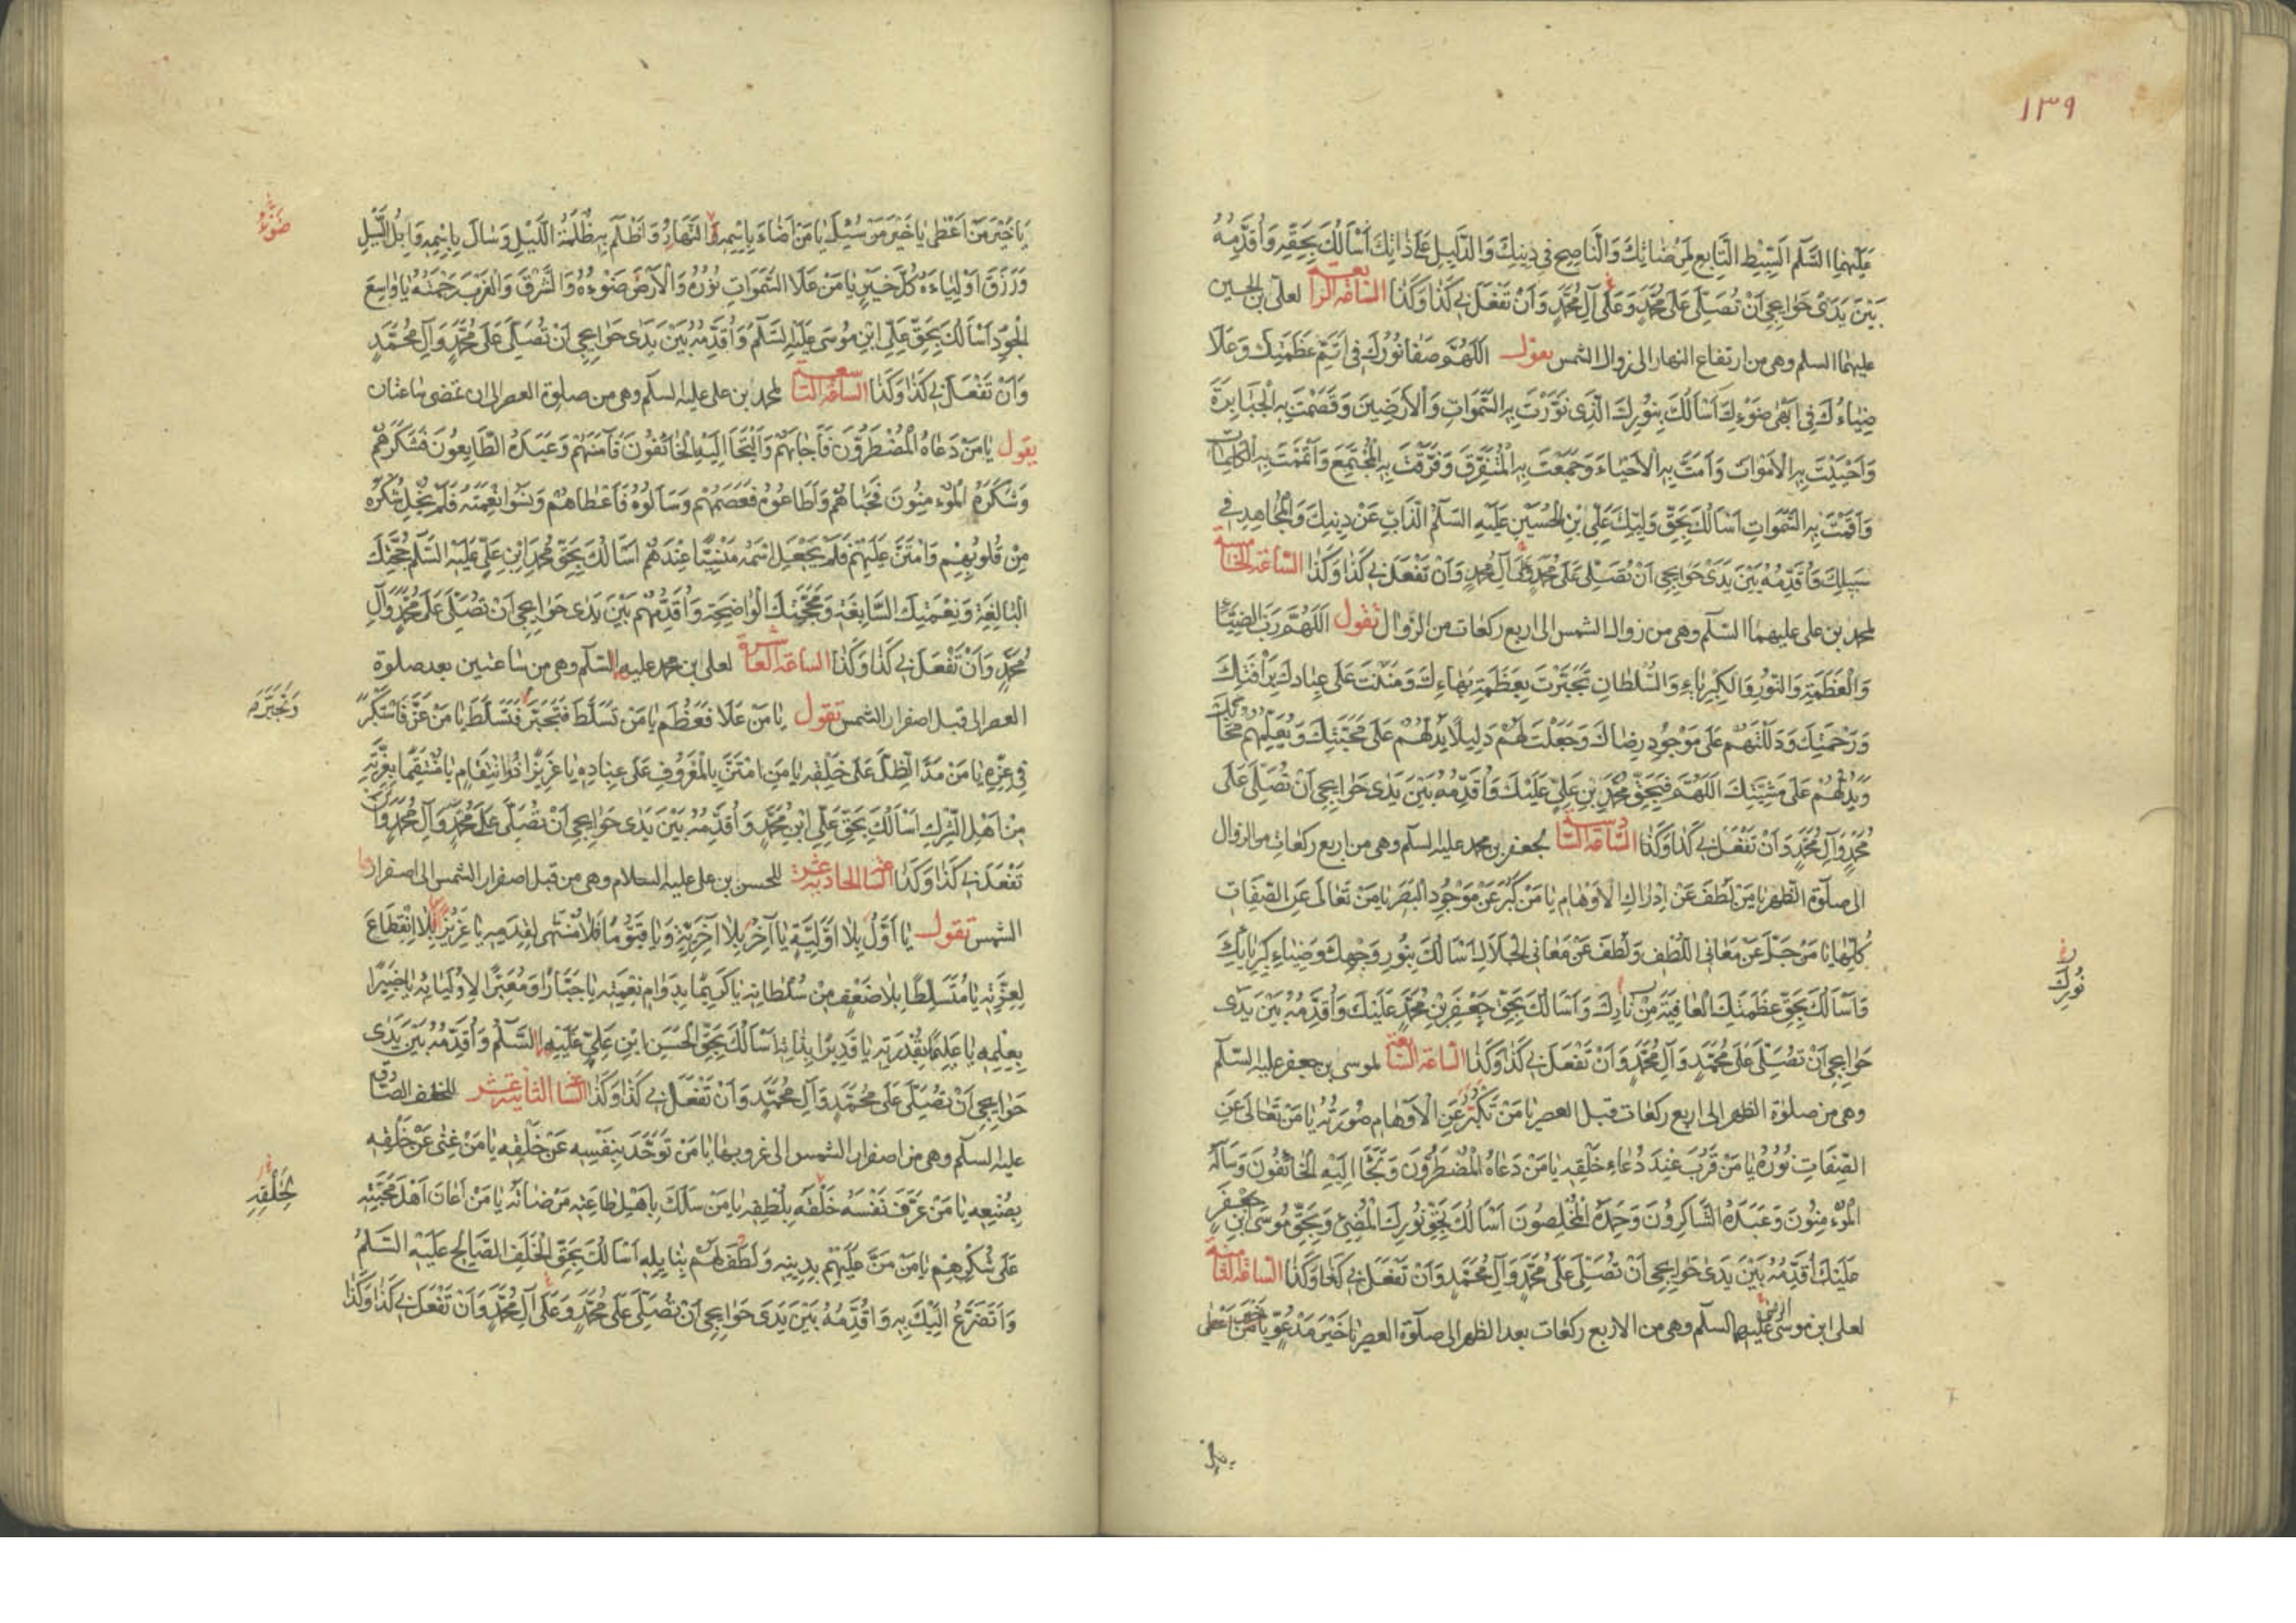 ١٣٩
عليهما السلم السبط التابع لمرضاتك والناصح في دينك والدليل على ذاتك اسالك بحقه واقدمه
بين يدى حوايجي ان تصلى على محمد وعلى آل محمد وان تفعل بي كذا وكذا الساعة الرابعة لعلى بن الحسين
عليهما السلم وهى من ارتفاع النهار الى زوال الشمس يقول اللهم صفا نورك في اتم عظمتك وعلا
ضياءك في ابهى ضوءك اسالك بنورك الذى نورت به السموات والارضين وقصمت به الجبابرة
واحييت به الاموات وامت به الاحياء وجمعت به المتفرق وفرقت به المجتمع واتممت به الكلمات
واقمت به السموات اسالك بحق وليك على بن الحسين عليه السلم الذاب عن دينك والمجاهد في
سبيلك واقدمه بين يدى حوايجي ان تصلى على محمد وعلى آل محمد وان تفعل بي كذا وكذا الساعة الخامسة
لمحمد بن على عليهما السلم وهى من زوال الشمس الى اربع ركعات من الزوال تقول اللهم رب الضياء
والعظمة والنور والكبرياء والسلطان تجبرت بعظمة بهاءك ومننت على عبادك برافتك
ورحمتك ودللتهم على موجود رضاك وجعلت لهم دليلا يدلهم على محبتك ويعلمهم محابك
ويدلهم على مشيتك اللهم فبحق محمد بن على عليك واقدمه بين يدى حوايجي ان تصلى على
محمد وآل محمد وان تفعل بي كذا وكذا الساعة السادسة لجعفر بن محمد عليه السلم وهى من اربع ركعات من الزوال
الى صلوة الظهر يا من لطف عن ادراك الاوهام يا من كبر عن موجود البصر يا من تعالى عن الصفات
كلها يا من جل عن معاني اللطف ولطف عن معاني الجلال اسالك بنور وجهك وضياء كبريائك
نورك
واسالك بحق عظمتك العافية من نارك واسالك بحق جعفر بن محمد عليك واقدمه بين يدى
حوايجي ان تصلى على محمد وآل محمد وان تفعل بي كذا وكذا الساعة السابعة لموسى بن جعفر عليه السلم
وهى من صلوة الظهر الى اربع ركعات قبل العصر يا من تكبر عن الاوهام صورته يا من تعالى عن
الصفات نوره يا من قرب عند دعاء خلقه يا من دعاه المضطرون ولجا اليه الخائفون وساله
المؤمنون وعبده الشاكرون وحمده المخلصون اسالك بحق نورك المضئ وبحق موسى ابن جعفر
عليك اقدمه بين يدى حوايجي ان تصلى على محمد وآل محمد وان تفعل بي كذا وكذا الساعة الثامنة
لعلى ابن موسى الرضى عليهما السلم وهى من الاربع ركعات بعد الظهر الى صلوة العصر يا خير مدعو يا خير من اعطى
يا خير من اعطى يا خير من سئل يا من اضاء باسمه ضوء النهار واظلم به ظلمة الليل وسال باسمه وابل السيل
ضوء
ورزق اولياءه كل خير يا من علا السموات نوره والارض ضوءه والشرق والغرب رحمته يا واسع
الجود اسالك بحق على ابن موسى عليه السلم واقدمه بين يدى حوايجي ان تصلى على محمد وآل محمد
وان تفعل بي كذا وكذا الساعة التاسعة لمحمد بن على عليه السلم وهى من صلوة العصر الى ان تمضى ساعتان
يقول يا من دعاه المضطرون فاجابهم والتجا اليه الخائفون فآمنهم وعبده الطايعون فشكرهم
وشكره المؤمنون فحباهم واطاعوه فعصمهم وسالوه فاعطاهم ونسوا نعمته فلم يخل شكره
من قلوبهم وامتن عليهم فلم يجعل اسمه منسيا عندهم اسالك بحق محمد ابن على عليه السلم حجتك
البالغة ونعمتك السابغة ومحجتك الواضحة واقدمهم بين يدى حوايجي ان تصلى على محمد وآل
محمد وان تفعل بي كذا وكذا الساعة العاشرة لعلى بن محمد عليه السلم وهى من ساعتين بعد صلوة
العصر الى قبل اصفرار الشمس تقول يا من علا فعظم يا من تسلط فتجبر فتسلط يا من عز فاستكبر
وتجبر
في عزه يا من مد الظل على خلقه يا من امتن بالمعروف على عباده يا عزيزا ذو انتقام يا منتقما بعزته
من اهل الشرك اسالك بحق على ابن محمد واقدمه بين يدى حوايجي ان تصلى على محمد وآل محمد وان
تفعل بي كذا وكذا الساعة الحادية عشر للحسن بن على عليه السلام وهى من قبل اصفرار الشمس الى اصفرار
الشمس تقول يا اول بلا اولية يا آخر بلا آخرية ويا قيوما بلا منتهى لقدمه يا عزيز بلا انقطاع
لعزته يا متسلطا بلا ضعف من سلطانه يا كريما بدوام نعمته يا جبارا ومعزا لاوليائه يا خبيرا
بعلمه يا عليما بقدرته يا قديرا بذاته اسالك بحق الحسن ابن على عليهما السلم واقدمه بين يدى
حوايجي ان تصلى على محمد وآل محمد وان تفعل بي كذا وكذا الساعة الثانية عشر للخلف الصادق
عليه السلم وهى من اصفرار الشمس الى غروبها يا من توحد بنفسه عن خلقه يا من غنى عن خلقه
بصنعه يا من عرف نفسه خلقه بلطفه يا من سلك باهل طاعته مرضاته يا من اعان اهل محبته
لخلقه
على شكرهم يا من من عليهم بدينه ولطف لهم بنايله اسالك بحق الخلف الصالح عليه السلم
واتضرع اليك به واقدمه بين يدى حوايجي ان تصلى على محمد وعلى آل محمد وان تفعل بي كذا وكذا